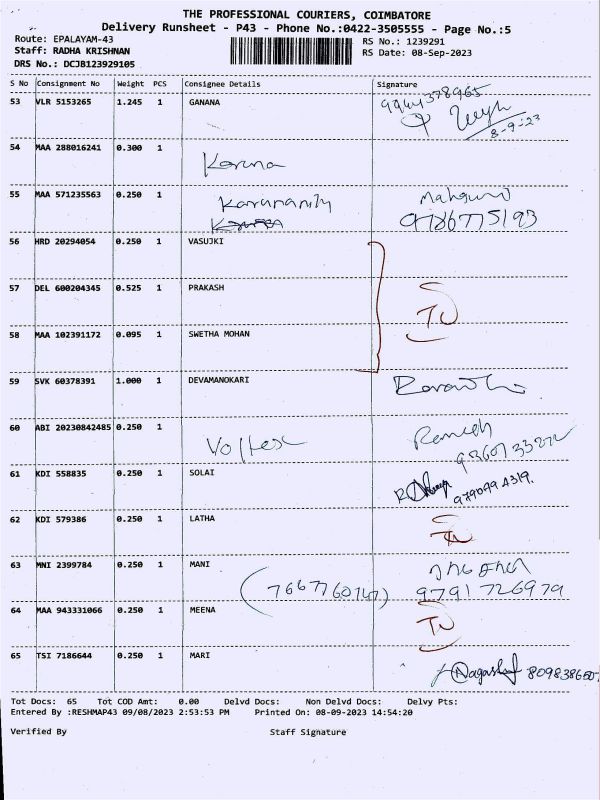 THE PROFESSIONAL COURIERS, COIMBATORE
Delivery Runsheet - P43 - Phone No.:0422-3505555 - Page No.:5
Route: EPALAYAM-43
RS No.: 1239291
Staff: RADHA KRISHNAN
RS Date: 08-Sep-2023
DRS No.: DCJB123929105
S No Consignment No Weight PCS Consignee Details Signature
53 VLR 5153265 1.245 1 GANANA 9944378965
8-9-23
54 MAA 288016241 0.300 1
Karuna
55 MAA 571235563 0.250 1
9786775193
56 HRD 20294054 0.250 1 VASUJKI
57 DEL 600204345 0.525 1 PRAKASH
58 MAA 102391172 0.095 1 SWETHA MOHAN
59 SVK 60378391 1.000 1 DEVAMANOKARI
60 ABI 20230842485 0.250 1
Voltex Ramesh
61 KDI 558835 0.250 1 SOLAI
9790994319.
62 KDI 579386 0.250 1 LATHA
63 MNI 2399784 0.250 1 MANI
(7667760747) 9791726979
64 MAA 943331066 0.250 1 MEENA
65 TSI 7186644 0.250 1 MARI
Tot Docs: 65 Tot COD Amt: 0.00 Delvd Docs: Non Delvd Docs: Delvy Pts:
Entered By :RESHMAP43 09/08/2023 2:53:53 PM Printed On: 08-09-2023 14:54:20
Verified By Staff Signature